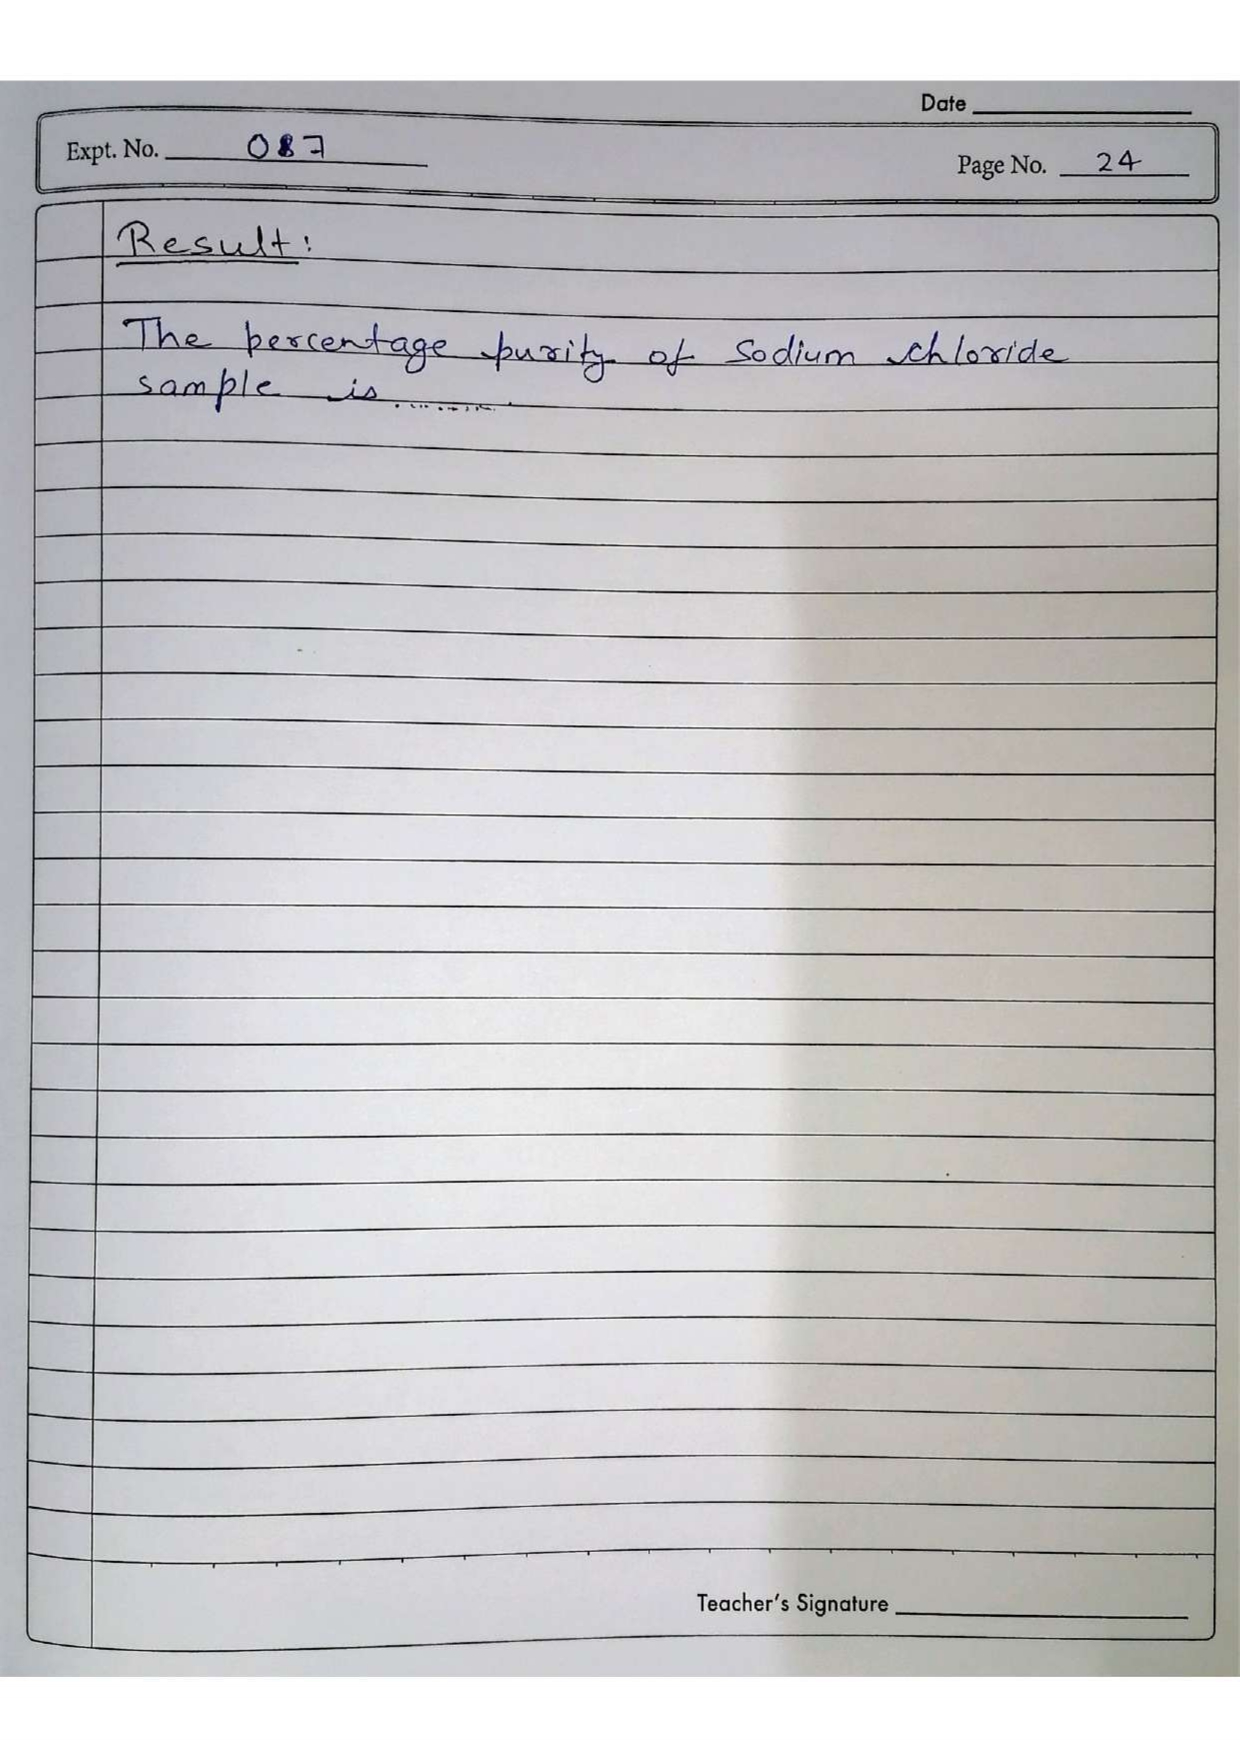 Date
Expt. No. 087
Page No. 24
Result:
The percentage purity of Sodium chloride
sample is ..........
Teacher's Signature